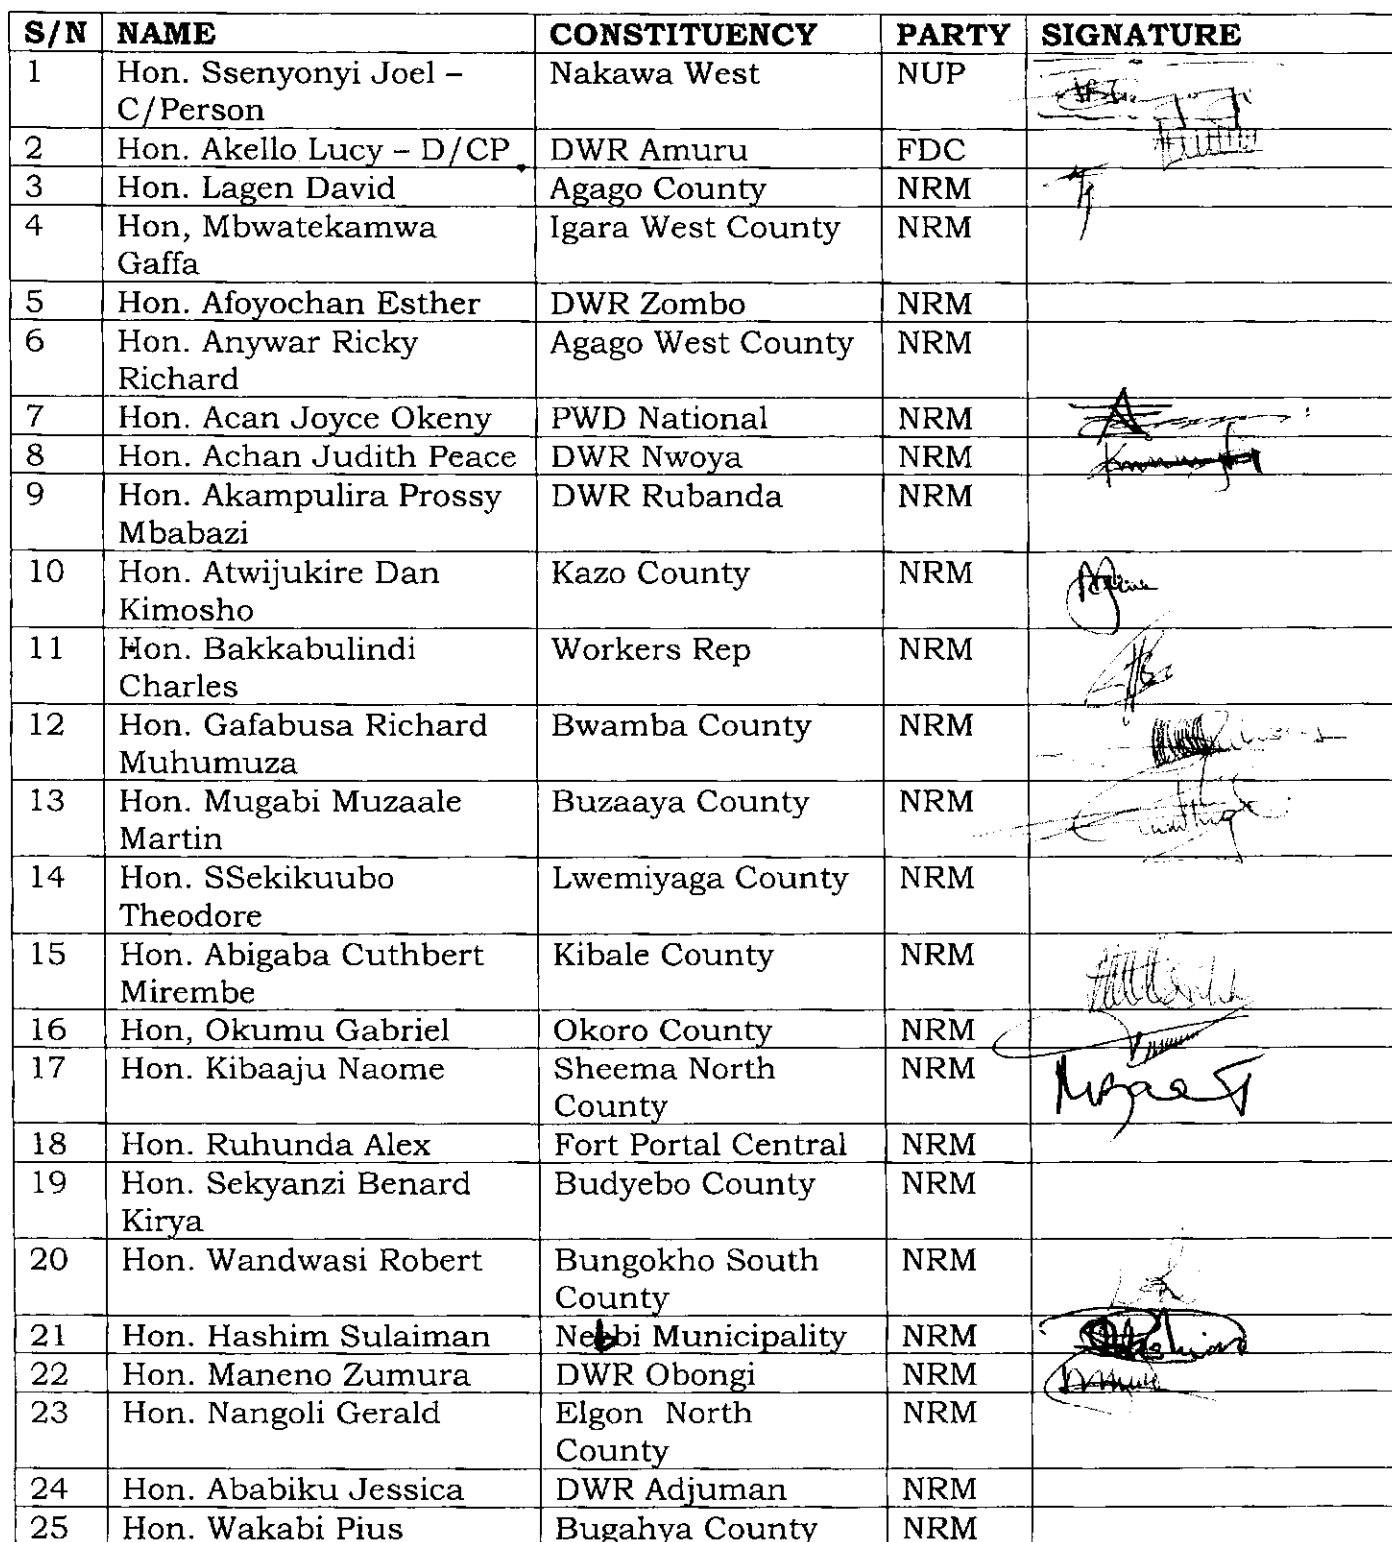 S/N NAME CONSTITUENCY PARTY SIGNATURE
1 Hon. Ssenyonyi Joel – Nakawa West NUP
C/Person
2 Hon. Akello Lucy – D/CP DWR Amuru FDC
3 Hon. Lagen David Agago County NRM
4 Hon, Mbwatekamwa Igara West County NRM
Gaffa
5 Hon. Afoyochan Esther DWR Zombo NRM
6 Hon. Anywar Ricky Agago West County NRM
Richard
7 Hon. Acan Joyce Okeny PWD National NRM
8 Hon. Achan Judith Peace DWR Nwoya NRM
9 Hon. Akampulira Prossy DWR Rubanda NRM
Mbabazi
10 Hon. Atwijukire Dan Kazo County NRM
Kimosho
11 Hon. Bakkabulindi Workers Rep NRM
Charles
12 Hon. Gafabusa Richard Bwamba County NRM
Muhumuza
13 Hon. Mugabi Muzaale Buzaaya County NRM
Martin
14 Hon. SSekikuubo Lwemiyaga County NRM
Theodore
15 Hon. Abigaba Cuthbert Kibale County NRM
Mirembe
16 Hon, Okumu Gabriel Okoro County NRM
17 Hon. Kibaaju Naome Sheema North NRM
County
18 Hon. Ruhunda Alex Fort Portal Central NRM
19 Hon. Sekyanzi Benard Budyebo County NRM
Kirya
20 Hon. Wandwasi Robert Bungokho South NRM
County
21 Hon. Hashim Sulaiman Nebbi Municipality NRM
22 Hon. Maneno Zumura DWR Obongi NRM
23 Hon. Nangoli Gerald Elgon North NRM
County
24 Hon. Ababiku Jessica DWR Adjuman NRM
25 Hon. Wakabi Pius Bugahya County NRM